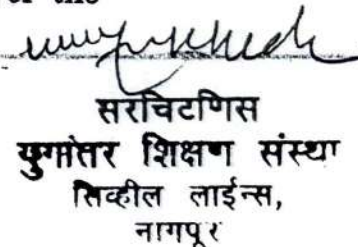 or the
सरचिटणिस
युगांतर शिक्षण संस्था
सिव्हील लाईन्स,
नागपूर